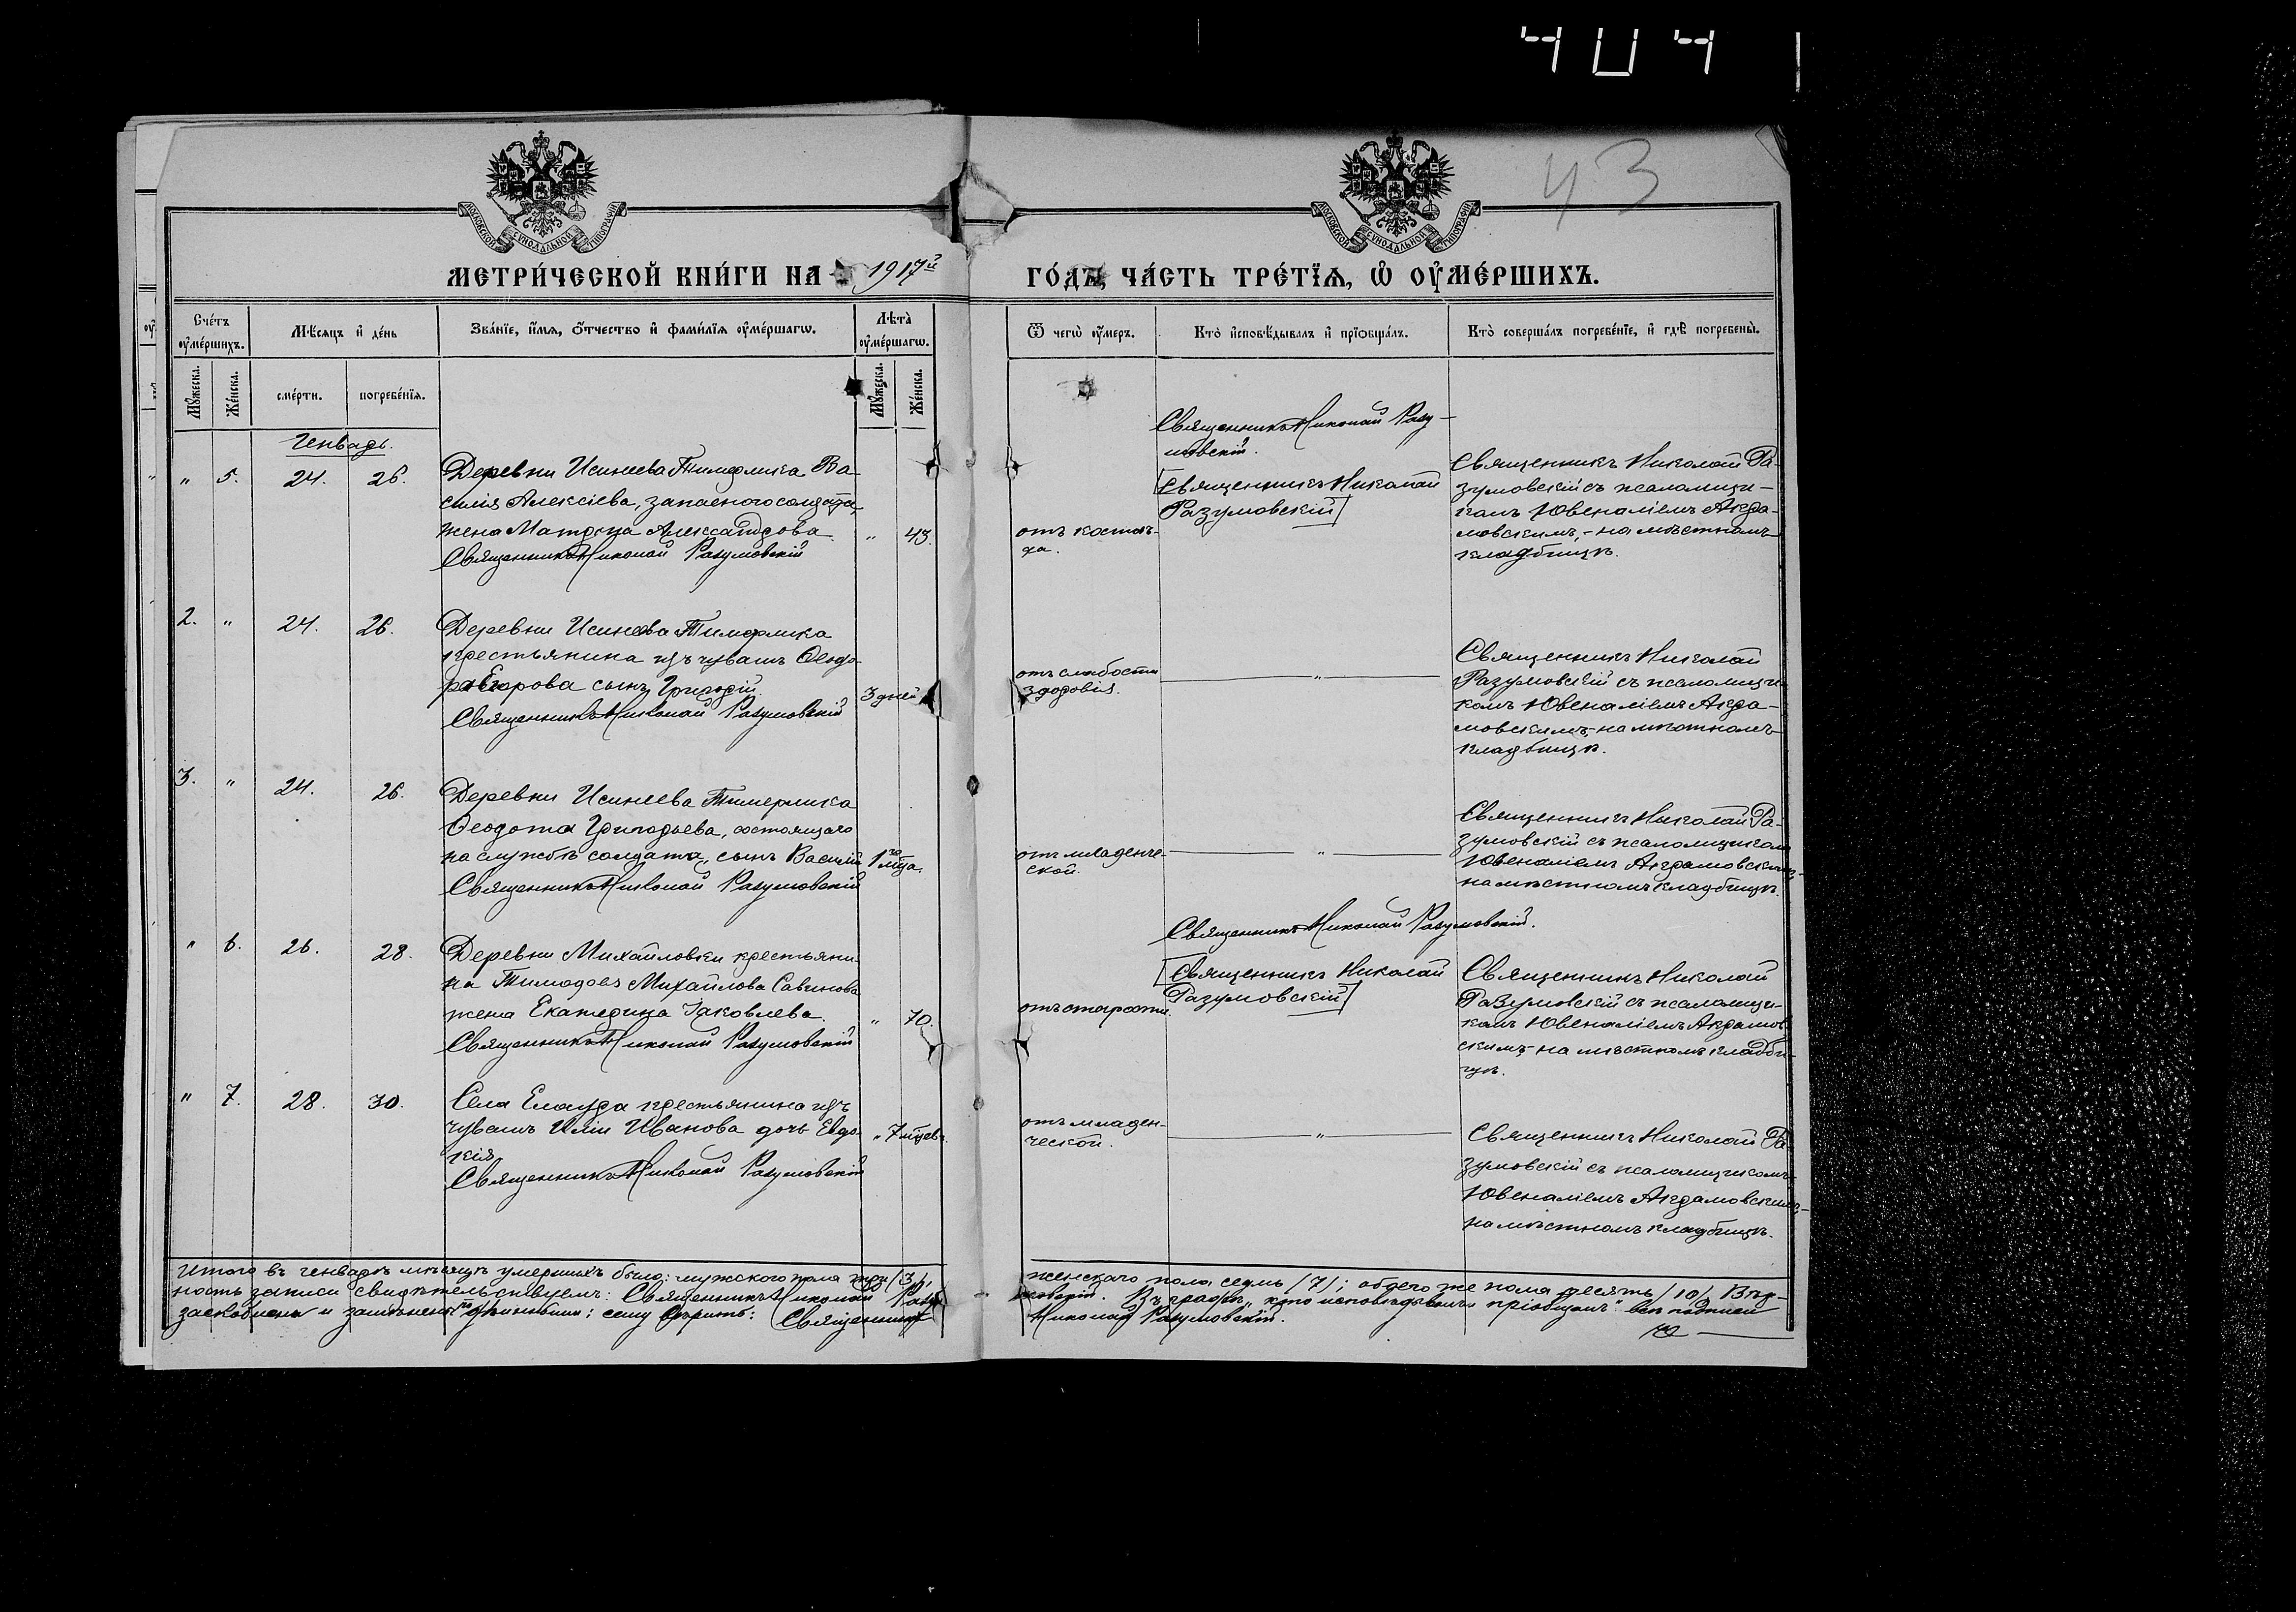 404
43
МОСКОВСКОЙ СѴНОДАЛЬНОЙ ТИПОГРАФІИ
МОСКОВСКОЙ СѴНОДАЛЬНОЙ ТИПОГРАФІИ
МЕТРИ́ЧЕСКОЙ КНИ́ГИ НА 1917й
ГО́ДЪ, ЧА́СТЬ ТРЕ́ТІѦ, Ѡ҆ ОУ҆МЕ́РШИХЪ.
Сче́тъ оу҆ме́ршихъ.
Мѣ́сѧцъ и҆ де́нь
Зва́нїе, и҆́мѧ, ѻ҆́тчество и҆ фами́лїѧ оу҆ме́ршагѡ.
Лѣ́та оу҆ме́ршагѡ.
Ѿ чегѡ̀ оу҆́меръ.
Кто̀ и҆сповѣ́дывалъ и҆ прїѡбща́лъ.
Кто̀ соверша́лъ погребе́нїе, и҆ гдѣ̀ погребены̀.
Мꙋ́жеска.
Же́нска.
сме́рти.
погребе́нїѧ.
Мꙋ́жеска.
Же́нска.
Генварь.
" 5. 24. 26.
Деревни Исинеева Тимерлика Ва-
силія Алексіева, запасного солдата,
жена Матрона Александрова
Священникъ Николай Разумовскій
" 43.
отъ костоѣ-
да.
Священникъ Николай Разу-
мовскій.
[Священникъ Николай
Разумовскій]
Священникъ Николай Ра-
зумовскій съ псаломщи-
комъ Ювеналіемъ Акра-
мовскимъ,-на мѣстномъ
кладбищѣ.
2. " 24. 26.
Деревни Исинеева Тимерлика
крестьянина изъ чувашъ Ѳеодо-
ра Егорова сынъ Григорій.
Священникъ Николай Разумовскій
3 дней
отъ слабости
здоровія.
"
Священникъ Николай
Разумовскій съ псаломщи-
комъ Ювеналіемъ Акра-
мовскимъ,-на мѣстномъ
кладбищѣ.
3. " 24. 26.
Деревни Исинеева Тимерлика
Ѳеодота Григорьева, состоящаго
на службѣ солдата, сынъ Василій
Священникъ Николай Разумовскій
1го мѣца.
отъ младенче-
ской.
"
Священникъ Николай Ра-
зумовскій съ псаломщикомъ
Ювеналіемъ Акрамовскимъ,-
на мѣстномъ кладбищѣ.
" 6. 26. 28.
Деревни Михайловки крестьяни-
на Тимоѳея Михайлова Савинова
жена Екатерина Іаковлева.
Священникъ Николай Разумовскій
" 70.
отъ старости.
Священникъ Николай Разумовскій.
[Священникъ Николай
Разумовскій]
Священникъ Николай
Разумовскій съ псаломщи-
комъ Ювеналіемъ Акрамов-
скимъ,-на мѣстномъ кладби-
щѣ.
" 7. 28. 30.
Села Елаура крестьянина изъ
чувашъ Иліи Иванова дочь Евдо-
кія
Священникъ Николай Разумовскій
" 7 мѣцевъ.
отъ младен-
ческой.
"
Священникъ Николай Ра-
зумовскій съ псаломщикомъ
Ювеналіемъ Акрамовскимъ,-
на мѣстномъ кладбищѣ.
Итого въ генварѣ мѣсяцѣ умершихъ было: мужского пола три /3/, женскаго пола семь /7/; обоего же пола десять /10/. Вѣр-
ность записи свидѣтельствуемъ: Священникъ Николай Разумовскій. Въ графѣ „кто исповѣдывалъ и пріобщалъ" всѣ подписи
заскоблены и замѣнены; сему вѣрить: Священникъ Николай Разумовскій.